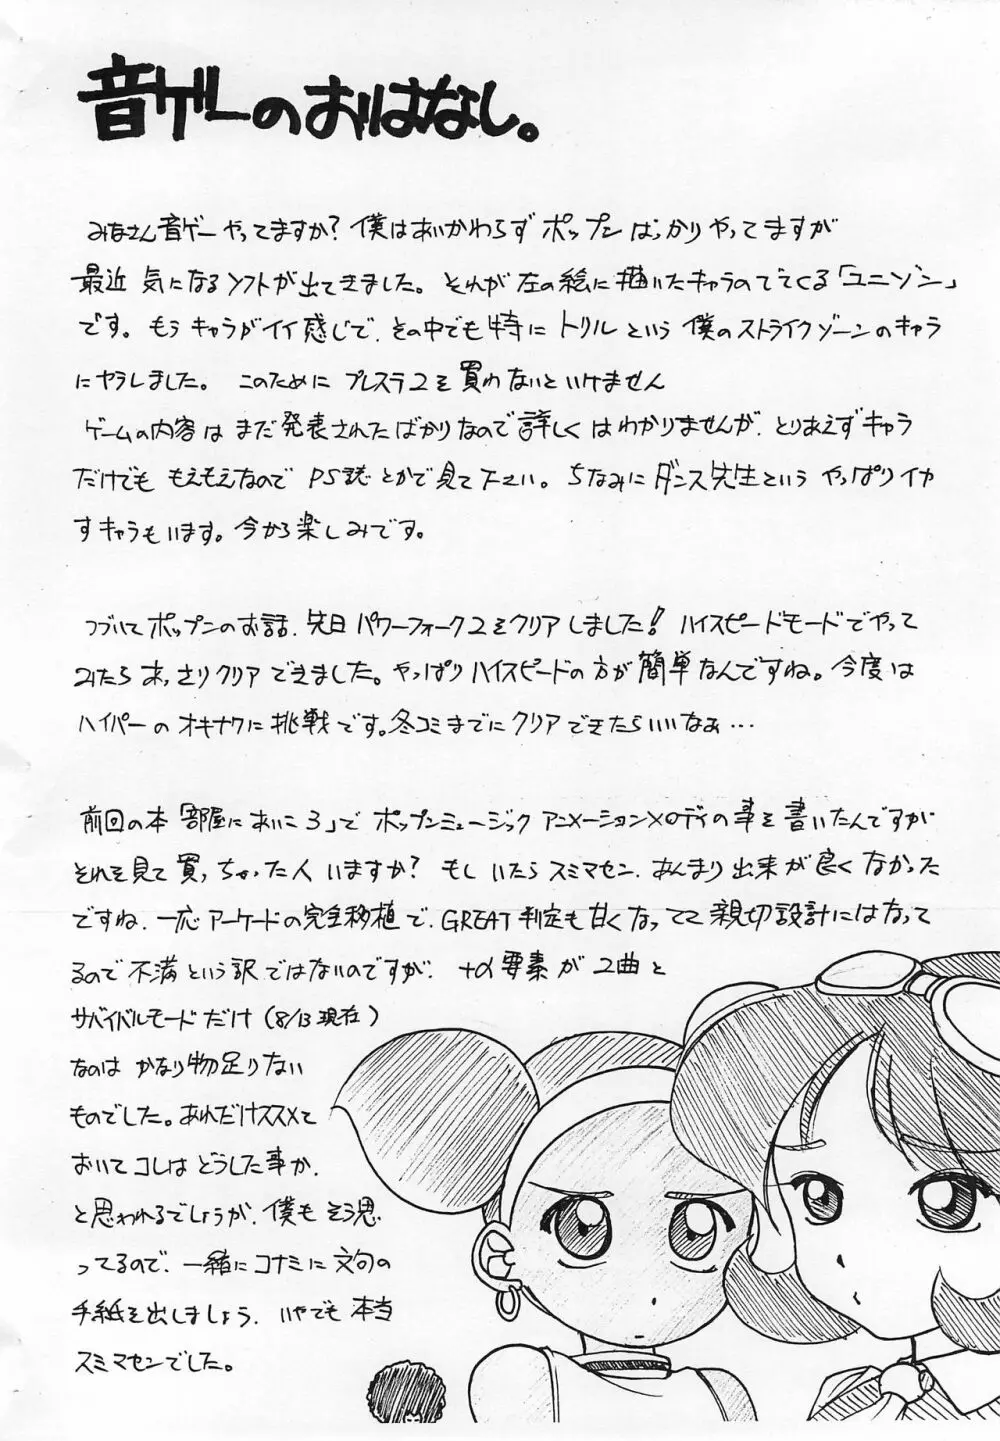 音ゲーのおはなし。
みなさん音ゲーやってますか?僕はあいかわらずポップンばっかりやってますが
最近気になるソフトが出てきました。それが左の絵に描いたキャラのでてくる「ユニゾン」
です。もうキャラがイイ感じで、その中でも特にトリルという僕のストライクゾーンのキャラ
にヤラレました。このためにプレステ2を買わないといけません
ゲームの内容はまだ発表されたばかりなので詳しくはわかりませんが、とりあえずキャラ
だけでももえもえなのでPS誌とかで見て下さい。ちなみにダンス先生というやっぱりイカ
すキャラもいます。今から楽しみです。
つづいてポップンのお話、先日パワーフォーク2をクリアしました!ハイスピードモードでやって
みたらあっさりクリアできました。やっぱりハイスピードの方が簡単なんですね。今度は
ハイパーのオキナワに挑戦です。冬コミまでにクリアできたらいいなぁ…
前回の本「部屋においころ」でポップンミュージックアニメーションメロディの事を書いたんですが
それを見て買っちゃった人いますか?もしいたらスミマセン、あんまり出来が良くなかった
ですね、一応アーケードの完全移植で、GREAT判定も甘くなってて親切設計にはなって
るので不満という訳ではないのですが、+α要素が2曲と
サバイバルモードだけ(8/13現在)
なのはかなり物足りない
ものでした。あれだけススメて
おいてコレはどうした事か、
と思われるでしょうが、僕もそう思
ってるので、一緒にコナミに文句の
手紙を出しましょう、いやでも本当
スミマセンでした。